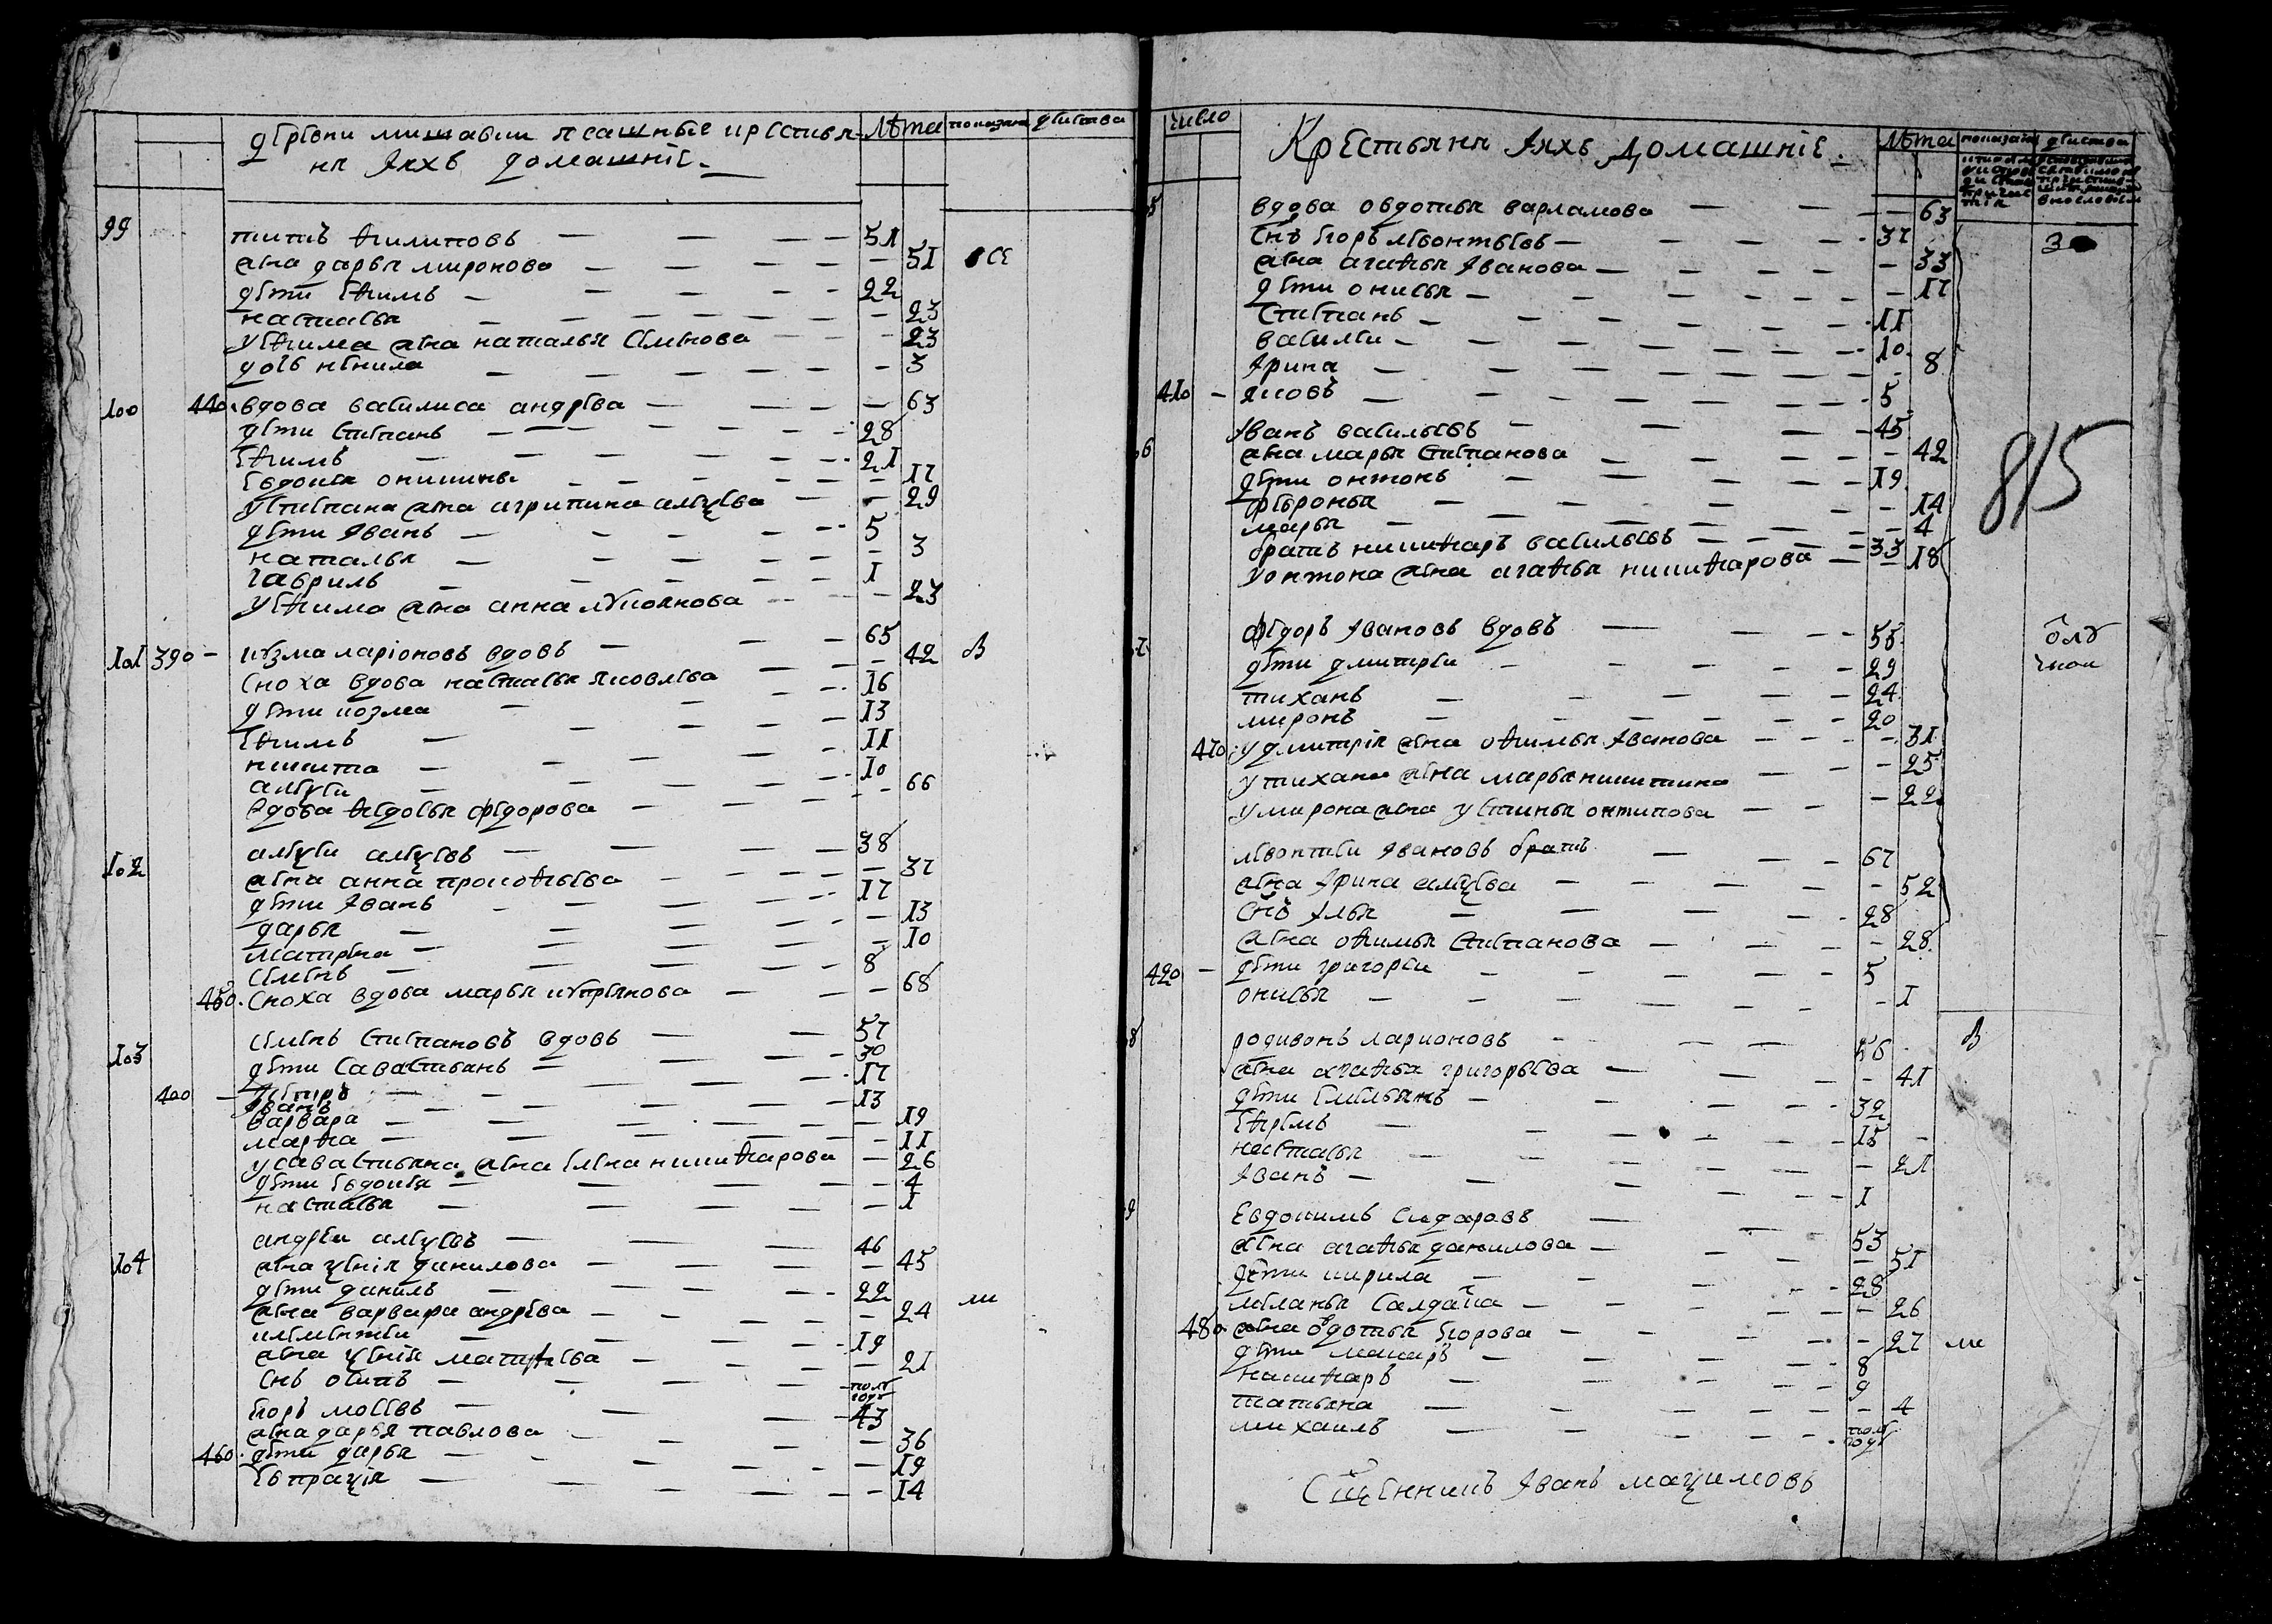 деревни
пашные крестья-
ни ихъ домашніе
лѣта
показание
действа
99
титъ филиповъ 51
жена дарья миронова 51
все
дети ефимъ 22
настасья 23
у ефима жена наталья семенова 23
дочь ненила 3
100 440 вдова василиса андрева 63
дети степанъ 28
ефимъ 21
евдокея 17
у степана жена агрипина алексева 29
дети иванъ 5
наталья 3
гаврилъ 1
у ефима жена анна лукоянова 23
101 390 кузма ларіоновъ вдовъ 65
сноха вдова настасья яковлева 42
в
дети козма 16
ефимъ 13
никита 11
алексеи 10
вдова федосья федорова 66
102
алексеи алексевъ 38
жена анна прокофьева 37
дети иванъ 17
дарья 13
матрена 10
семенъ 8
450 сноха вдова марья купреянова 68
103
семенъ степановъ вдовъ 57
дети савастьянъ 30
400 петръ 17
иванъ 13
варвара 19
марфа 11
у савастьяна жена елена никифарова 26
дети евдокея 4
настасья 1
104
андреи алексевъ 46
жена ксенія данилова 45
дети данилъ 22
жена варвара андрева 24
ми
климентеи 19
жена ксенія матфеева 21
снъ осипъ полугоду
егоръ мосеевъ 43
жена дарья павлова 36
460 дети дарья 19
евпраксія 14
число
Крестьяня ихъ домашніе
лѣта
показание
действа
5
вдова овдотья варламова 63
снъ егоръ левонтьевъ 37
жена агафья иванова 33
дети онисья 17
степанъ 11
василеи 10
ирина 8
410 яковъ 5
иванъ васильевъ 45
6
жена марья степанова 42
дети онтонъ 19
февронья 14
марья 4
братъ никифаръ васильевъ 33
у онтона жена агафья никифарова 18
815
7
федоръ ивановъ вдовъ 55
дети дмитреи 29
тиханъ 24
миронъ 20
470 у дмитрія жена офимья иванова 31
у тихана жена марья никитина 25
у мирона жена устинья онтипова 22
левонтеи ивановъ братъ 67
жена ирина алексева 52
снъ илья 28
жена офимья степанова 28
420 дети григореи 5
онисья 1
8
родивонъ ларионовъ 56
в
жена агафья григорьева 41
дети емельянъ 32
ефремъ 15
настасья 21
иванъ 1
9
Евдокимъ сидаровъ 53
жена агафья данилова 51
дети кирила 28
меланья салдатка 26
480 жена овдотья егорова 27
ми
дети макаръ 8
никифаръ 9
татьяна 4
михаилъ полугоду
Сщенникъ иванъ максимовъ